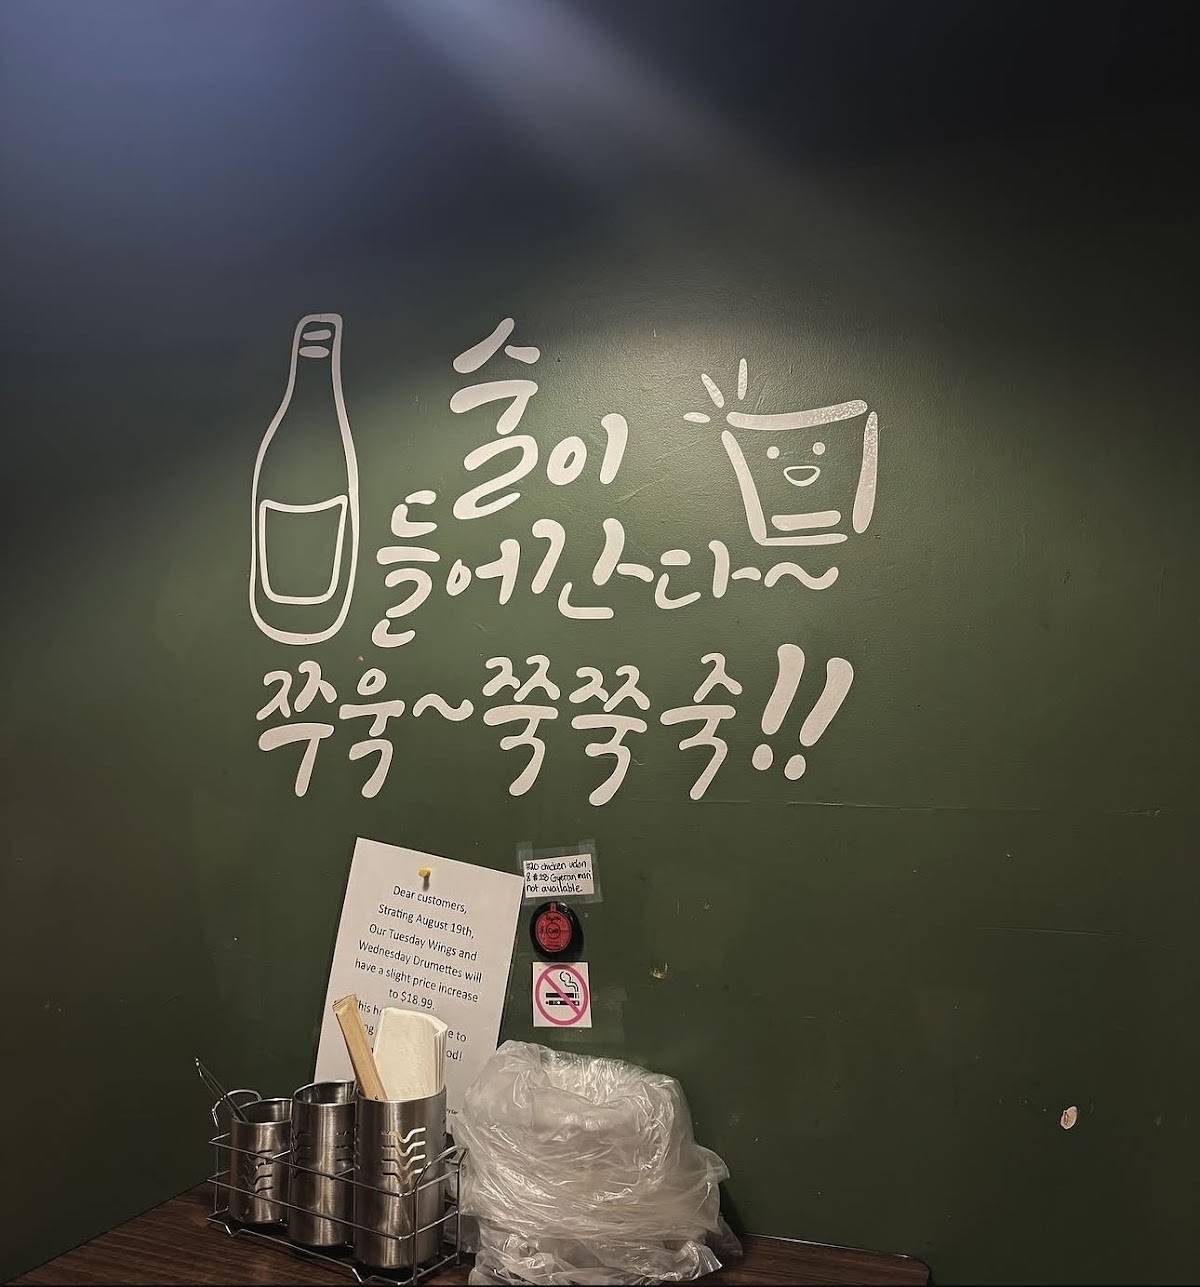 술이
들어간다~
쭈욱~쭉쭉죽!!
Dear customers,
Strating August 19th,
Our Tuesday Wings and
Wednesday Drumettes will
have a slight price increase
to $18.99.
#20 chicken udon
& #28 Gyeran mari
not available